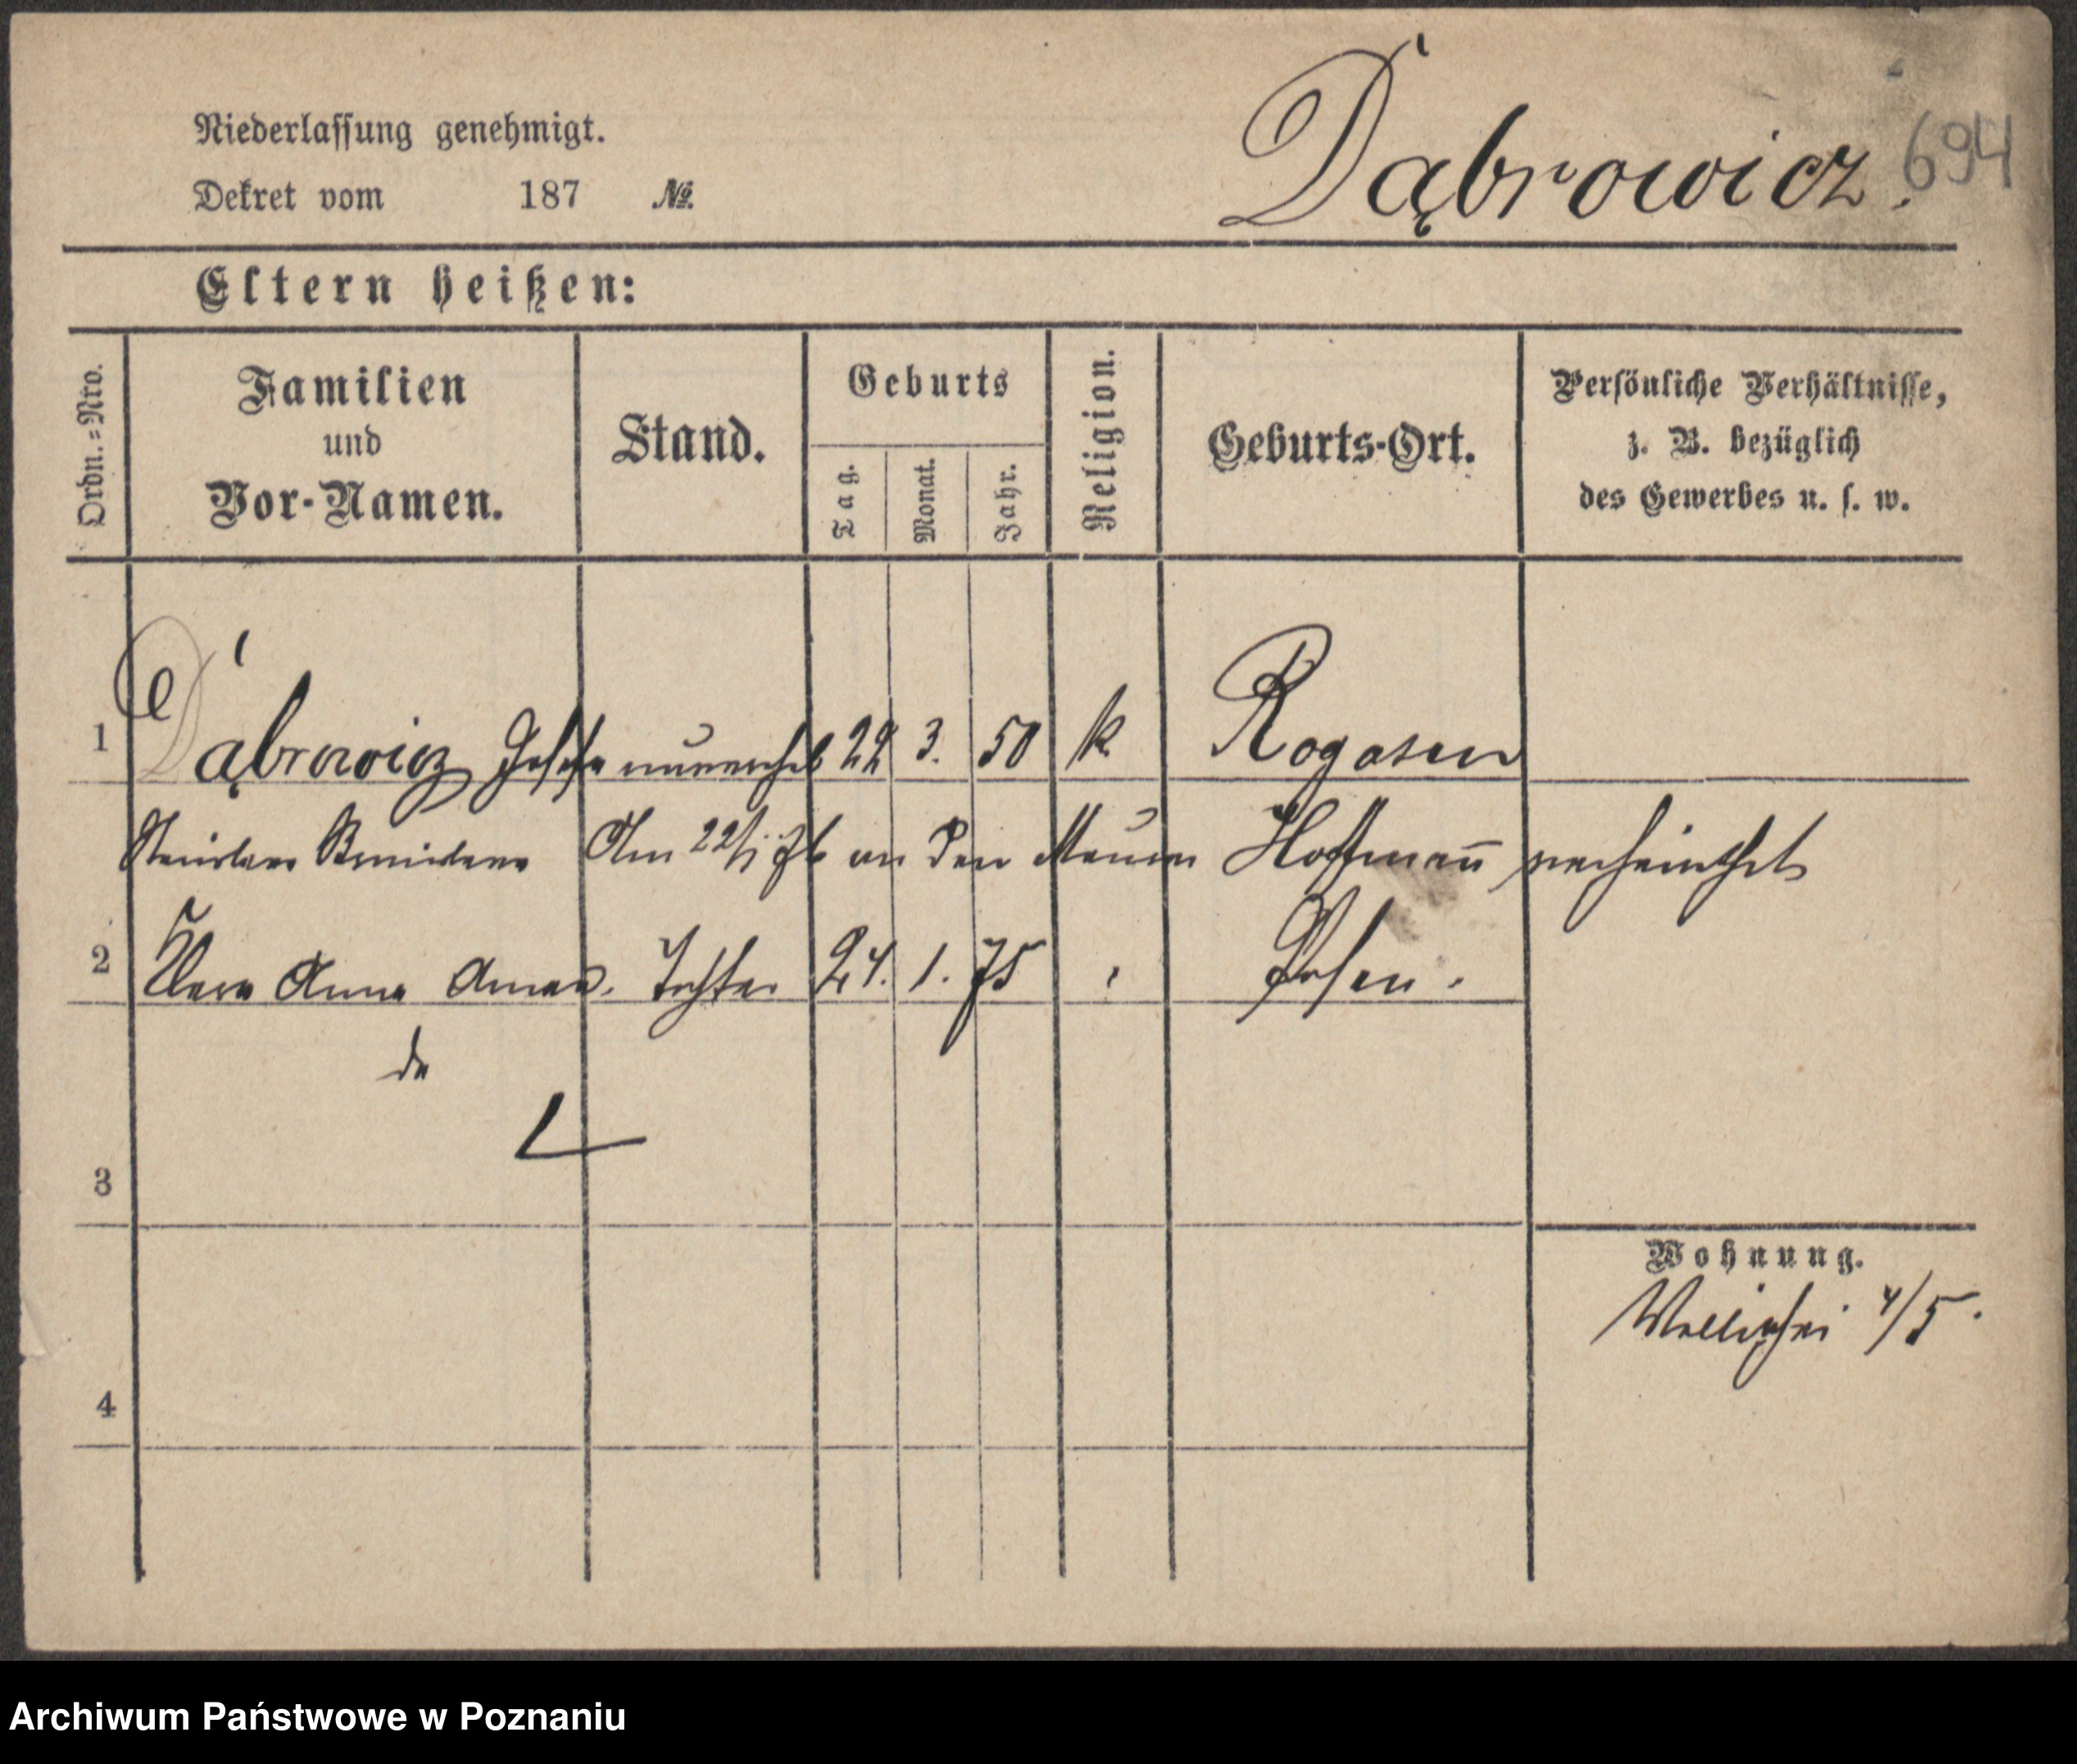 Niederlassung genehmigt.
Dekret vom 187 №
Dąbrowicz.
694
Eltern heißen:
Ordn.=Nro.
Familien
und
Vor-Namen.
Stand.
Geburts
Tag.
Monat.
Jahr.
Religion.
Geburts-Ort.
Persönliche Verhältnisse,
z. B. bezüglich
des Gewerbes u. s. w.
1 Dąbrowicz Josefa unverehel 22 3. 50 k Rogasen
Am 22/1 76 an den Maurer Hoffmañ verheirathet
2 Anna Tochter 24. 1. 75 Posen.
3
Wohnung.
Wallischei 4/5.
4
Archiwum Państwowe w Poznaniu